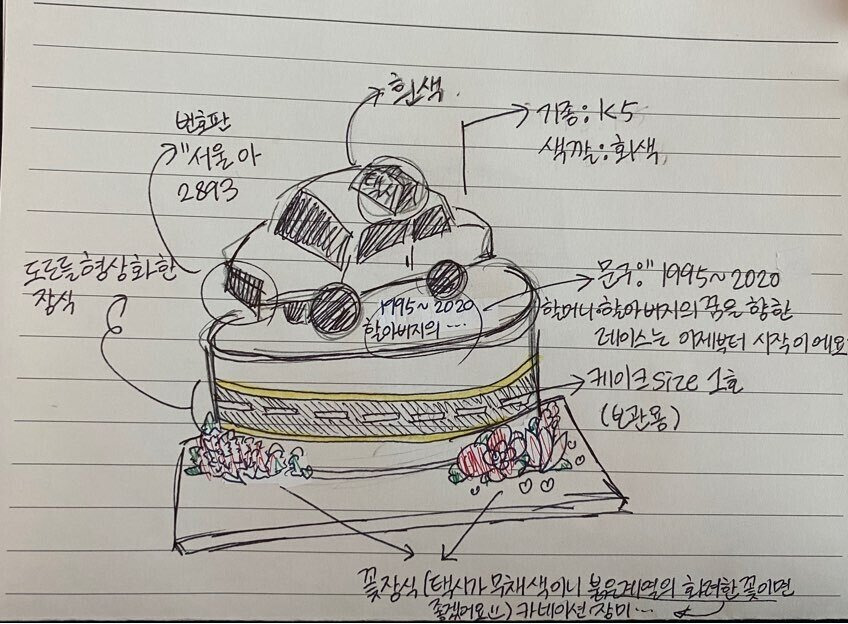 흰색.
기종: K5
색깔: 회색
번호판
"서울 아
2893
택시
도로를 형상화한
장식
1995~2020
할아버지의 ...
문구: "1995~2020
할머니·할아버지의 꿈을 향한
레이스는 이제부터 시작이에요
케이크 size 1호
(보관용)
꽃장식 (택시가 무채색이니 붉은계열의 화려한 꽃이면
좋겠어요!!) 카네이션 장미 ...